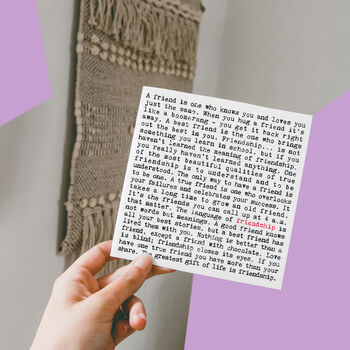 A friend is one who knows you and loves you
just the same. When you hug a friend it's
like a boomerang - you get it back right
away. A best friend is the one who brings
out the best in you. Friendship... is not
something you learn in school, but if you
haven't learned the meaning of friendship,
you really haven't learned anything. One
of the most beautiful qualities of true
friendship is to understand and to be
understood. The only way to have a friend is
to be one. A true friend is one who overlooks
your failures and celebrates your success. It
takes a long time to grow an old friend.
It's the friends you can call up at 4 a.m.
that matter. The language of friendship is
not words but meanings. A good friend knows
all your best stories, but a best friend has
lived them with you. Nothing is better than a
friend, except a friend with chocolate. Love
is blind; friendship closes its eyes. If you
have one true friend you have more than your
share. The greatest gift of life is friendship.